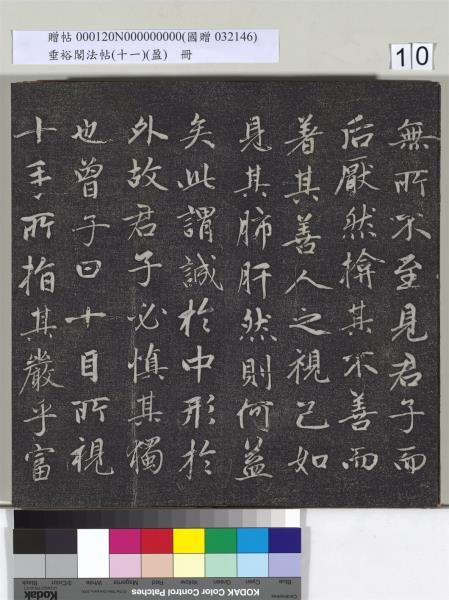 贈帖 000120N000000000(國贈 032146)
垂裕閣法帖(十一)(盈) 冊
10
無所不至見君子而
后厭然揜其不善而
著其善人之視己如
見其肺肝然則何益
矣此謂誠於中形於
外故君子必慎其獨
也曾子曰十目所視
十手所指其嚴乎富
Blue
Cyan
Green
Yellow
Red
Magenta
White
3/Color
Black
Kodak
KODAK Color Control Patches